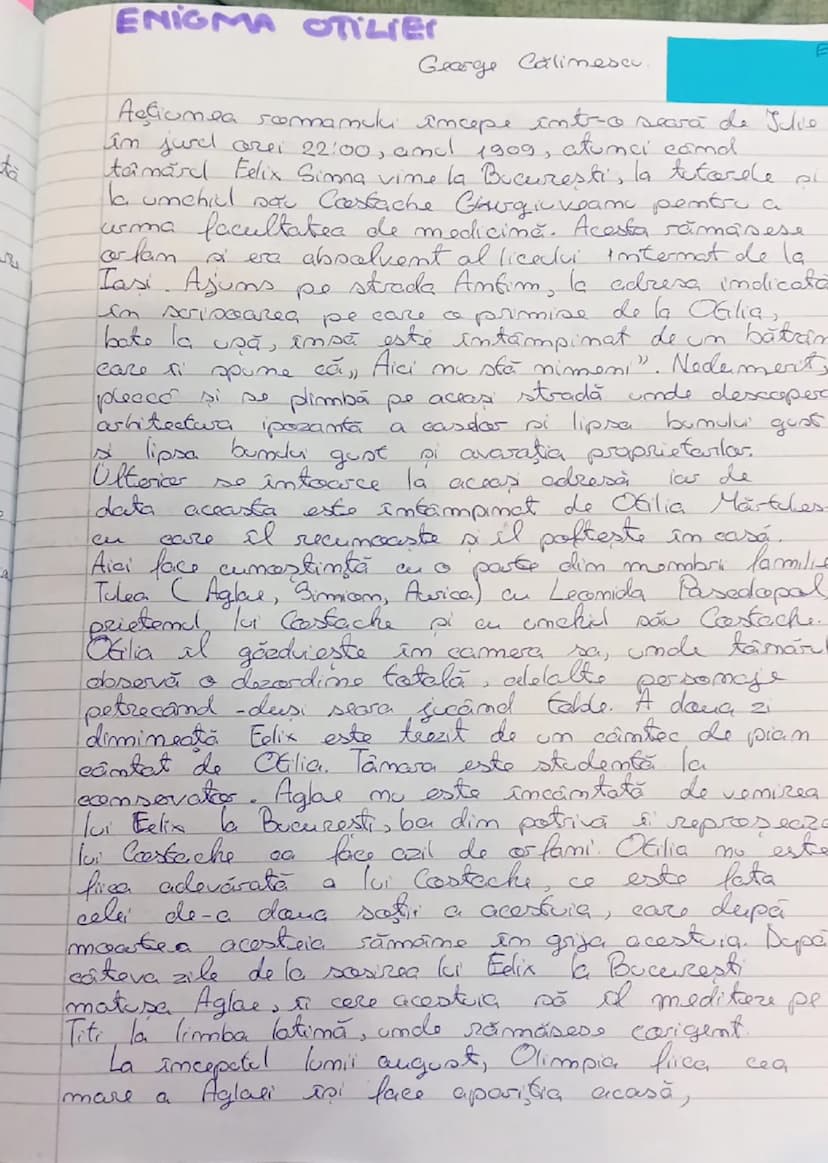 ENIGMA OTILIEI
George Călinescu.
Acțiunea romanului începe într-o seară de Iulie
în jurul orei 22:00, anul 1909, atunci când
tânărul Felix Sima vine la București, la tutorele și
la unchiul său Costache Giurgiuveanu pentru a
urma facultatea de medicină. Acesta rămăsese
orfan și era absolvent al liceului internat de la
Iași. Ajuns pe strada Antim, la adresa indicată
în scrisoarea pe care o primise de la Otilia,
bate la ușă, însă este întâmpinat de un bătrân
care îi spune că „Aici nu stă nimeni”. Nedumerit,
pleacă și se plimbă pe aceași stradă unde descoperă
arhitectura ipozantă a caselor și lipsa bunului gust
și lipsa bunului gust și avarația proprietarilor.
Ulterior se întoarce la aceași adresă iar de
data aceasta este întâmpinat de Otilia Mărcules-
cu care îl recunoaște și îl poftește în casă.
Aici face cunoștință cu o parte din membri familie
Tulea (Aglae, Simion, Aurica) cu Leonida Pascalopol,
prietenul lui Costache și cu unchiul său Costache.
Otilia îl găzduiește în camera sa, unde tânărul
observă o dezordine totală, celelalte personaje
petrecând-uși seara jucând table. A doua zi
dimineață Felix este trezit de un cântec de pian
cântat de Otilia. Tânara este studentă la
conservator. Aglae nu este încântată de venirea
lui Felix la București, ba din potrivă îi reproșează
lui Costache ca face azil de orfani. Otilia nu este
fiica adevărată a lui Costache, ce este fata
celei de-a doua soții a acestuia, care după
moartea acesteia rămâne în grija acestuia. După
câteva zile de la sosirea lui Felix la București
matușa Aglae, îi cere acestuia să îl mediteze pe
Titi la limba latină, unde rămăsese corigent.
La începutul lunii august, Olimpia fiica cea
mare a Aglaei își face apariția acasă,